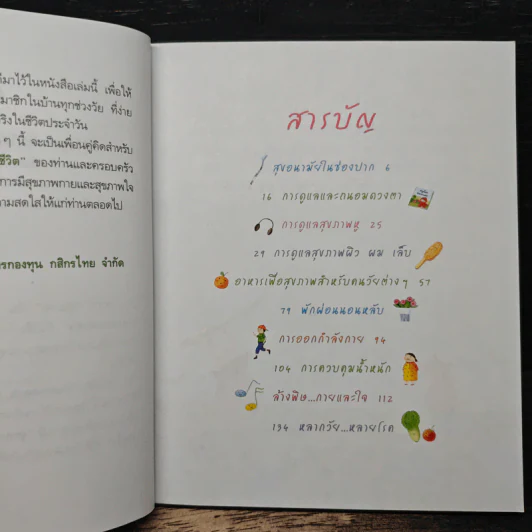 มาไว้ในหนังสือเล่มนี้ เพื่อให้
มาชิกในบ้านทุกช่วงวัย ที่ง่าย
ริงในชีวิตประจำวัน
ๆ นี้ จะเป็นเพื่อนคู่คิดสำหรับ
ชีวิต" ของท่านและครอบครัว
การมีสุขภาพกายและสุขภาพใจ
ามสดใสให้แก่ท่านตลอดไป
รกองทุน กสิกรไทย จำกัด
สารบัญ
สุขอนามัยในช่องปาก 6
16 การดูแลและถนอมดวงตา
การดูแลสุขภาพหู 25
29 การดูแลสุขภาพผิว ผม เล็บ
อาหารเพื่อสุขภาพสำหรับคนวัยต่างๆ 57
79 พักผ่อนนอนหลับ
การออกกำลังกาย 94
104 การควบคุมน้ำหนัก
ล้างพิษ...กายและใจ 112
134 หลากวัย...หลายโรค